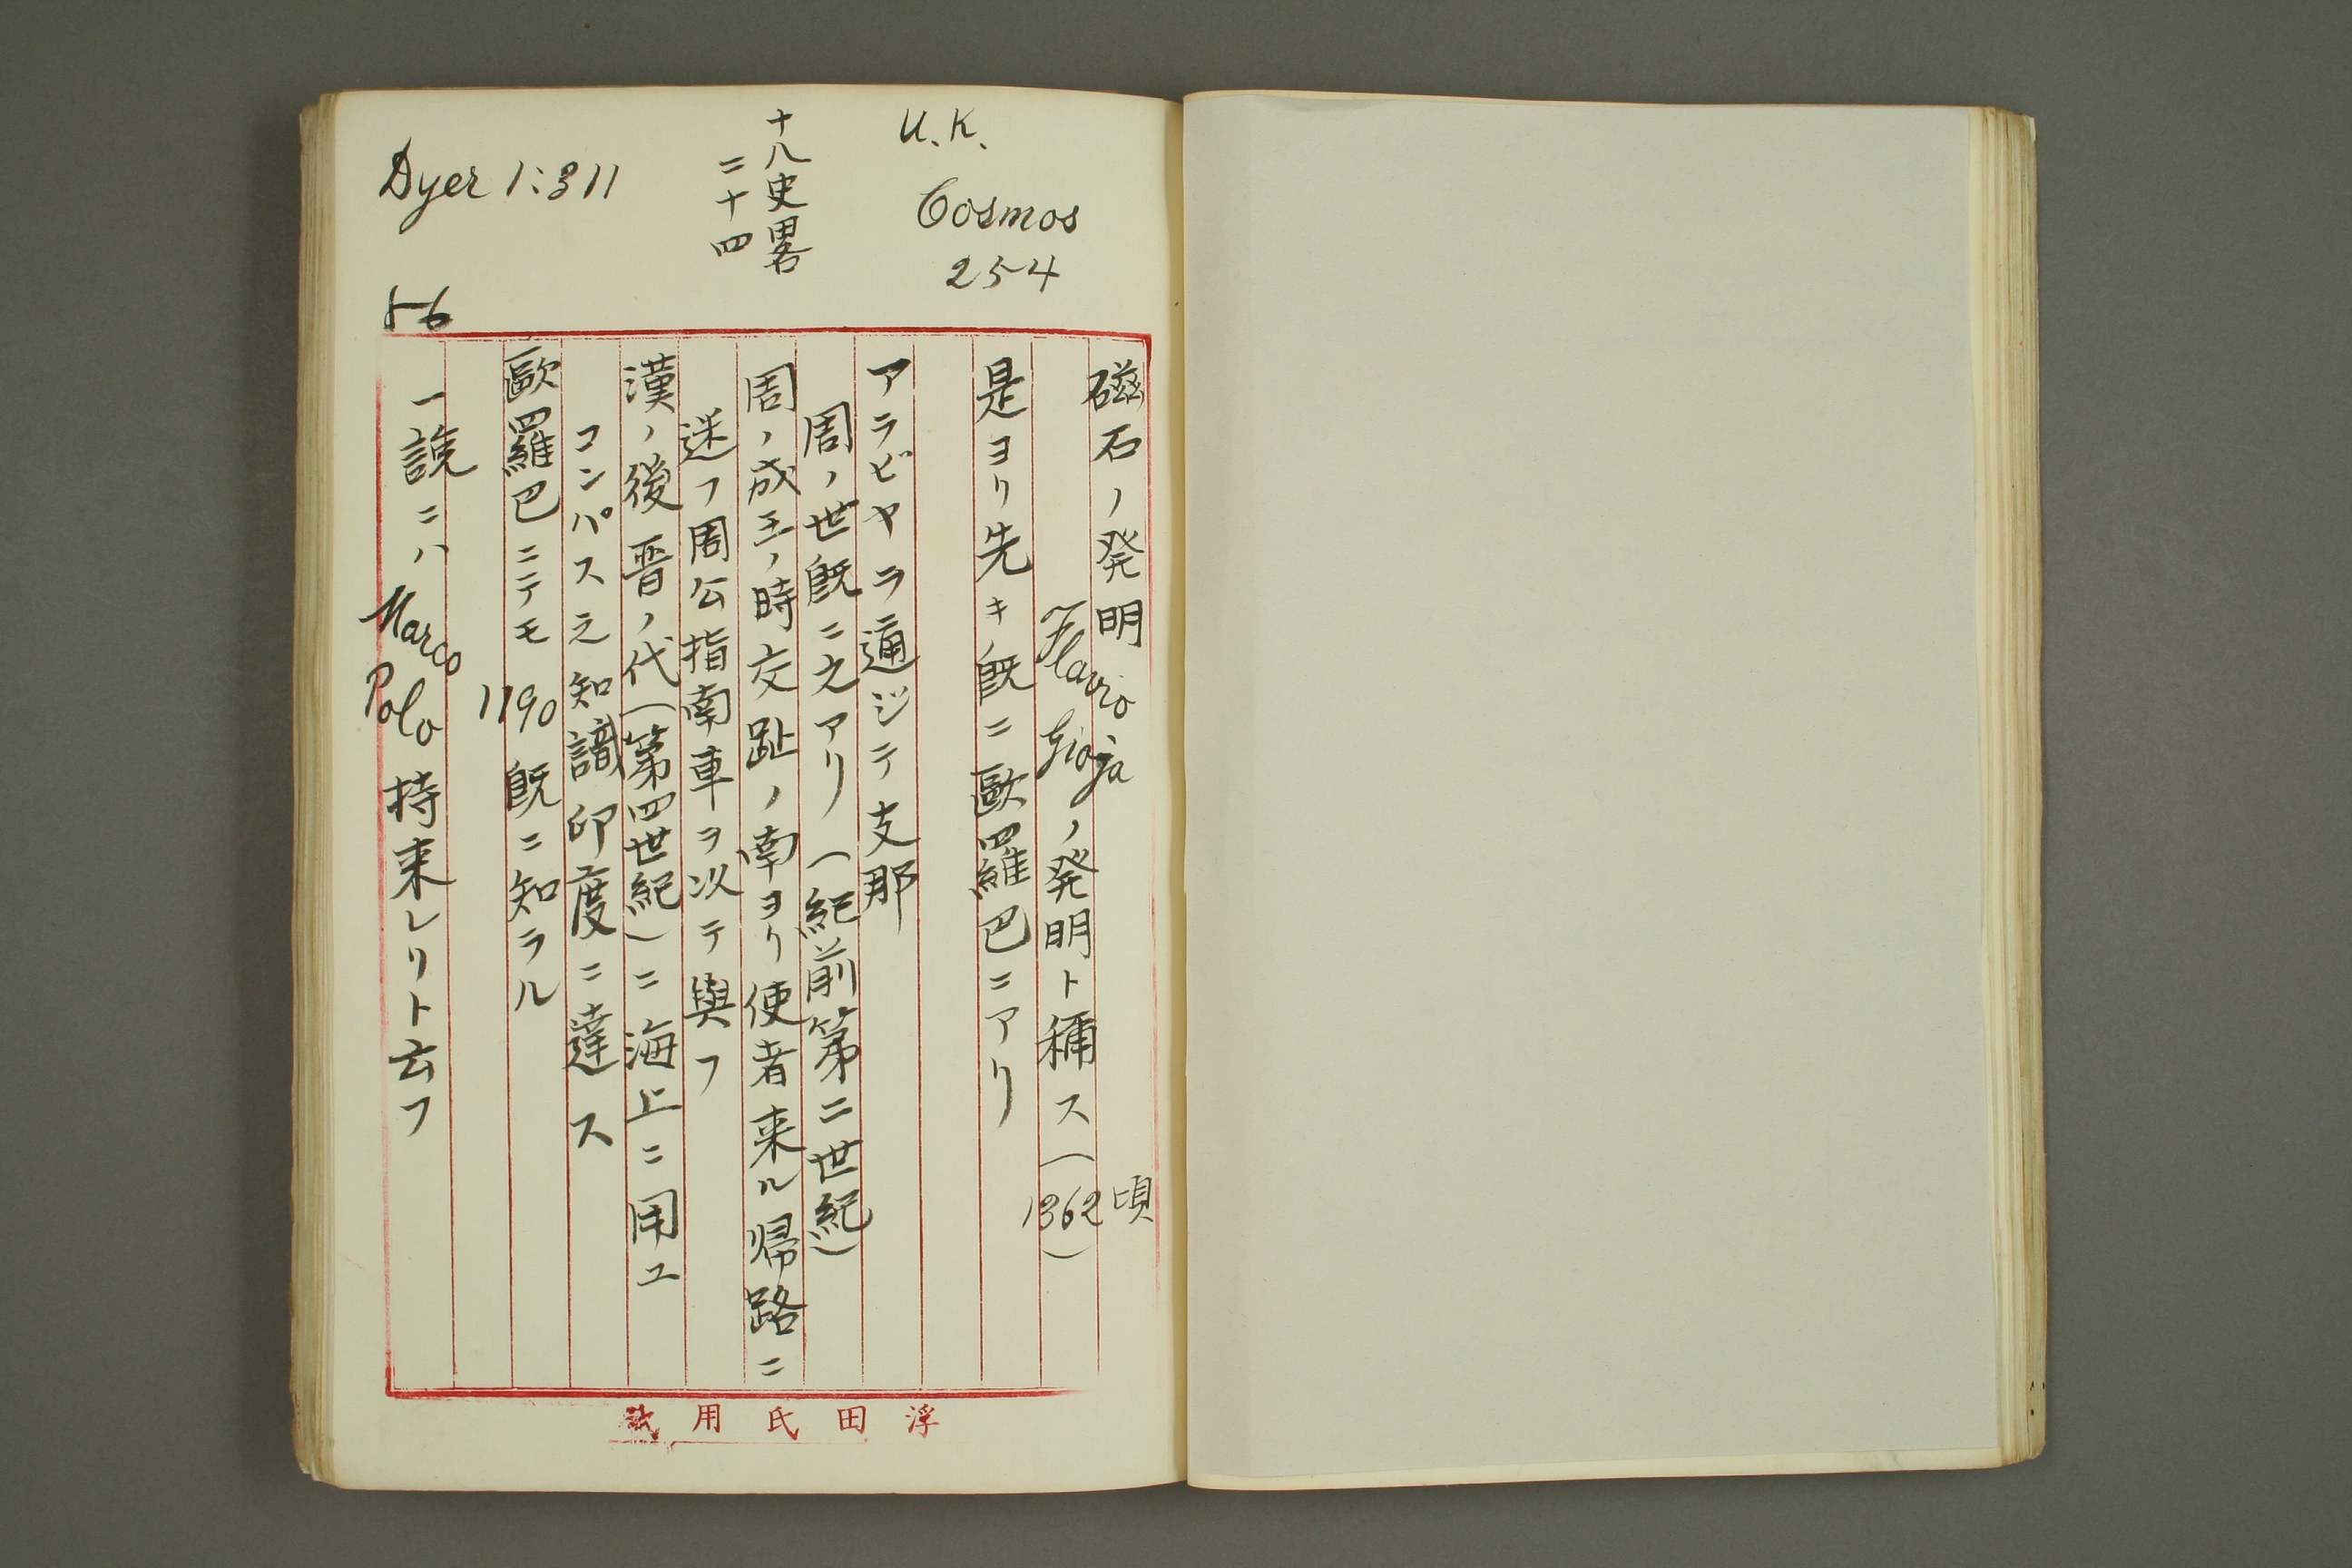 U.K.
Cosmos
254
十八史畧
二十四
Dyer 1:311
56
磁石ノ発明
Flavio Gioja ノ発明ト稱ス(1362頃)
是ヨリ先キ既ニ歐羅巴ニアリ
アラビヤヲ通ジテ支那
周ノ世既ニ之アリ(紀前第二世紀)
周ノ成王ノ時交趾ノ南ヨリ使者来ル帰路ニ
迷フ周公指南車ヲ以テ與フ
漢ノ後晋ノ代(第四世紀)ニ海上ニ用ユ
コンパス之知識印度ニ達ス
歐羅巴ニテモ 1190 既ニ知ラル
一説ニハ Marco Polo 持来レリト云フ
浮田氏用